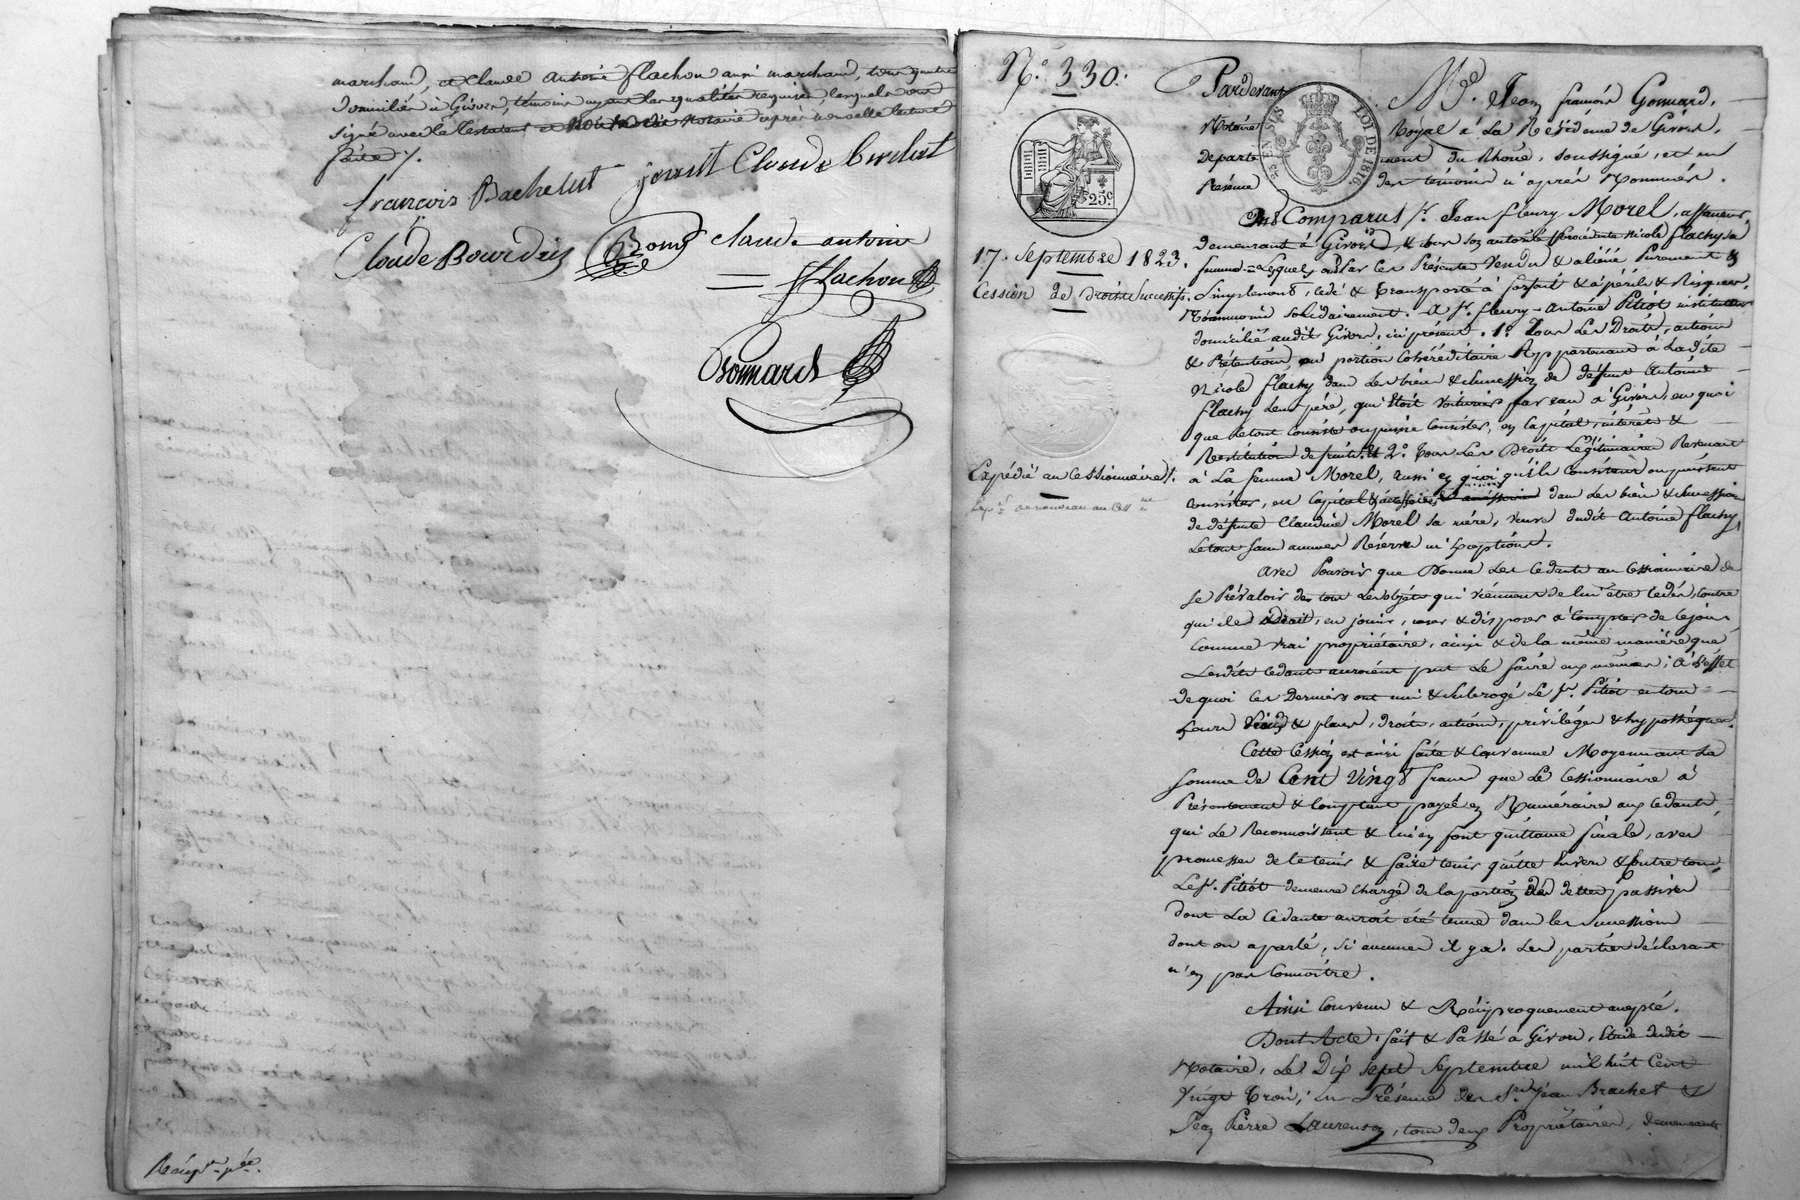 marchand, et Claude Antoine flachon aussi marchand, tous quatre
domiciliés à Givors, témoins ayant les qualités requises, lesquels ont
signé avec le testateur et Nous dit Notaire après nouvelle lecture
faite /.
françois Bachelut
Claude Bourdin
claude antoine
flachon
Gonnard
N.º 330.
EN SUS
LOI DE 1816.
25.c
17. Septembre 1823.
Cession de droits Successifs.
Expédié au Cessionnaire /.
Pardevant Me. Jean françois Gonnard,
Notaire Royal à La Résidence de Givors,
departement du Rhône, soussigné, et en
Présence des témoins ci après Nommés.
Ont Comparus Sr. Jean fleury Morel, affaneur,
demeurant à Givors, & sous son autorité procédante Nicole flachy sa
femme = Lesquels ont Par ces Présentes Vendu & aliéné Purement &
Simplement, cédé & transporté à forfait & à périls & Risques,
Néanmoins solidairement. A Sr. fleury-Antoine Pitiot instituteur
domicilié audit Givors, ici présent. 1.º Tous Les Droits, actions
& Prétentions, ou portion Cohéréditaire Appartenant à Ladite
Nicole flachy dans les biens & succession de défunt Antoine
flachy Son père, qui étoit voiturier par eau à Givors, en quoi
que Le tout Consiste ou puisse Consister, en Capital, intérêts &
Restitution de fruits. Et 2.º Tous Les Droits Légitimaires Revenant
à La femme Morel, aussi en quoi qu'ils Consistent ou puissent
consister, en Capital & accessoires dans Les biens & succession
de défunte Claudine Morel sa mère, veuve dudit Antoine flachy,
Le tout sans aucunes Réserves ni Exceptions.
Avec Pouvoir que Donne Les Cédants au Cessionnaire de
se Prévaloir de tous Les objets qui viennent de lui être cédés, Contre
qui de droit, en jouir, user & disposer à Compter de ce jour
Comme vrai propriétaire, ainsi & de la même manière que
Lesdits Cédants auroient put Le faire eux mêmes; à l'effet
de quoi ces Derniers ont mis & Subrogé Le Sr. Pitiot en tous
Leurs Lieux & places, droits, actions, privilèges & hypothèques.
Cette Cession est ainsi faite & Convenue Moyennant La
Somme de Cent Vingt francs que Le Cessionnaire à
Présentement & Comptant payée en Numéraire aux Cédants
qui Le Reconnoissent & lui en font quittance finale, avec
promesse de le tenir & faire tenir quitte Envers & Contre tous,
Le Sr. Pitiot demeure Chargé de la portion des dettes passives
dont La Cédante auroit été tenue dans les Successions
dont on a parlé, si aucunes il y a. Les parties déclarant
n'en pas Connoitre.
Ainsi Convenu & Réciproquement accepté.
Dont Acte. fait & Passé à Givors, Etude dudit
Notaire, Le Dix sept Septembre mil huit Cent
Vingt Trois; En Présence des Srs. Jean Brachet &
Jean Pierre Laurenson, tous deux Propriétaires, demeurants